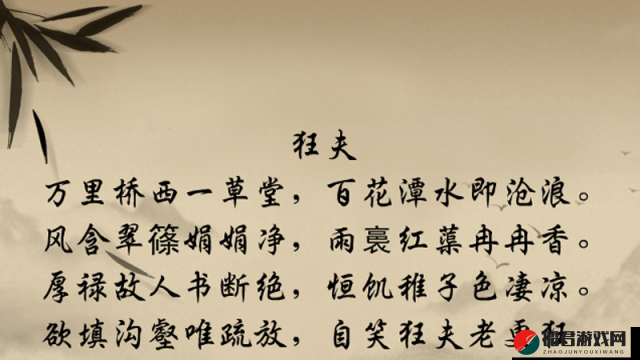 狂夫
万里桥西一草堂，百花潭水即沧浪。
风含翠篠娟娟净，雨裛红蕖冉冉香。
厚禄故人书断绝，恒饥稚子色凄凉。
欲填沟壑唯疏放，自笑狂夫老更狂
游戏网
ZHAOJUNYOUXIWANG